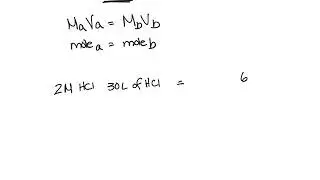 MaVa = MbVb
mole a = mole b
2M HCl 30L of HCl = 6